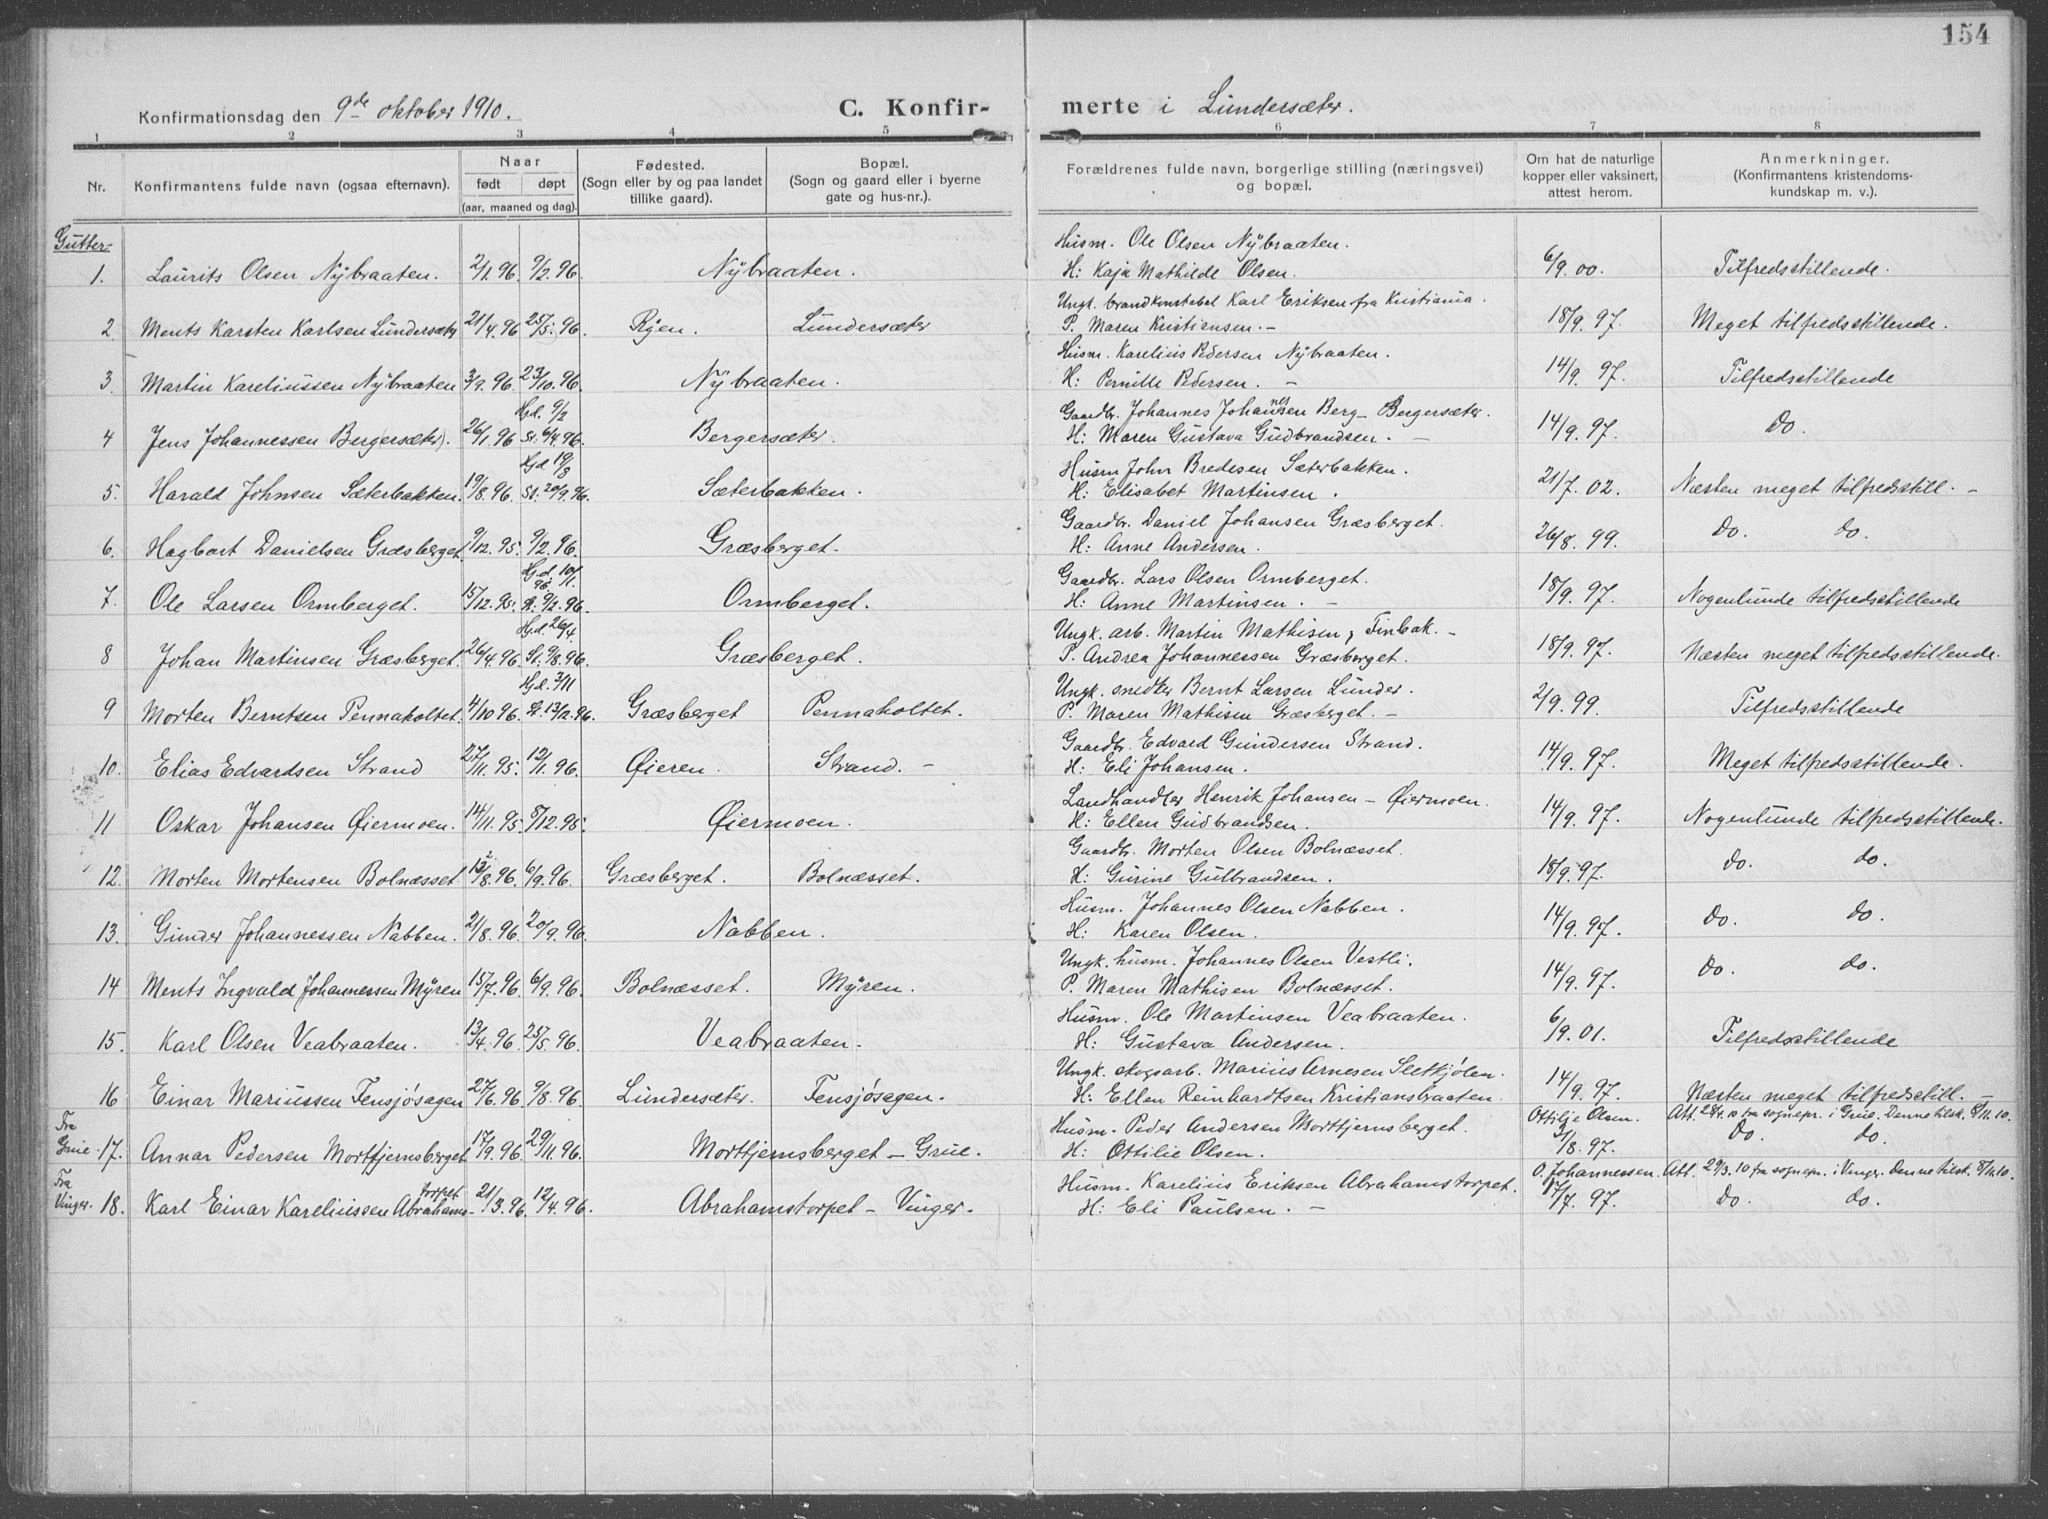 154
Konfirmationsdag den 9de oktober 1910. C. Konfir- merte i Lundersæter.
1 2 3 4 5 6 7 8
Nr. Konfirmantens fulde navn (ogsaa efternavn). Naar født døpt (aar, maaned og dag). Fødested. (Sogn eller by og paa landet tillike gaard). Bopæl. (Sogn og gaard eller i byerne gate og hus-nr.). Forældrenes fulde navn, borgerlige stilling (næringsvei) og bopæl. Om hat de naturlige kopper eller vaksinert, attest herom. Anmerkninger. (Konfirmantens kristendoms- kundskap m. v.).
Gutter-
Husm. Ole Olsen Nybraaten.
1. Laurits Olsen Nybraaten. 2/1.96. 9/2.96. Nybraaten. H: Kaja Mathilde Olsen. 6/9.00. Tilfredsstillende.
Ungk. brandkonstabel Karl Eriksen fra Kristiania.
2. Ments Karsten Karlsen Lundersæter 21/4.96 25/5.96. Ryen. Lundersæter P. Maren Kristiansen. — 18/9.97. Meget tilfredsstillende.
Husm. Karelius Pedersen Nybraaten.
3. Martin Kareliussen Nybraaten 3/9.96. 23/10.96. Nybraaten. H: Pernille Pedersen. — 14/9.97. Tilfredsstillende
Hjd. 9/2 Gaardbr. Johannes Johannesen Berg - Bergersæter.
4 Jens Johannessen Bergersæter. 26/1.96 St. 6/4.96. Bergersæter. H: Maren Gustava Gudbrandsen. — 14/9.97. Do.
Hjd 19/8 Husm John Bredesen Sæterbakken.
5. Harald Johnsen Sæterbakken. 19/8.96. St. 20/9.96. Sæterbakken. H: Elisabet Martinsen. 21/7.02. Næsten meget tilfredsstill. —
Gaardbr. Daniel Johansen Græsberget.
6. Hagbart Danielsen Græsberget 9/12.95. 9/2.96. Græsberget. H: Anne Andersen. 26/8.99. Do. do.
Hjd. 10/1. 96. Gaardbr. Lars Olsen Ormberget.
7. Ole Larsen Ormberget. 15/12.95. St. 9/2.96. Ormberget. H: Anne Martinsen. — 18/9.97. Nogenlunde tilfredsstillende
Hjd. 26/4. Ungk. arb. Martin Mathisen, Finbak. —
8 Johan Martinsen Græsberget. 26/4.96. St. 9/8.96. Græsberget. P. Andrea Johannessen Græsberget. 18/9.97. Næsten meget tilfredsstillende.
Hjd. 3/11 Ungk. snedker Bernt Larsen Lunder.
9 Morten Berntsen Pennaholtet. 4/10 96. St. 13/12.96. Græsberget Pennaholtet. P. Maren Mathisen Græsberget. — 2/9.99. Tilfredsstillende
Gaardbr. Edvard Gundersen Strand.
10. Elias Edvardsen Strand 27/11.95. 12/1.96. Øieren. Strand. — H: Eli Johansen. 14/9.97. Meget tilfredsstillende.
Landhandler Henrik Johansen - Øiermoen.
11 Oskar Johansen Øiermoen. 14/11.95. 8/12.95. Øiermoen. H: Ellen Gudbrandsen. 14/9.97. Nogenlunde tilfredsstillende.
Gaardbr. Morten Olsen Bolnæsset.
12. Morten Mortensen Bolnæsset 12/8.96. 6/9.96. Græsberget. Bolnæsset. H: Gurine Gulbrandsen. 18/9.97. do. do.
Husm. Johannes Olsen Nabben.
13. Gunder Johannessen Nabben. 21/8.96. 20/9.96. Nabben. H: Karen Olsen. 14/9.97. Do. do.
Ungk. husm. Johannes Olsen Vestli.
14 Ments Ingvald Johannessen Myren 15/7.96. 6/9.96. Bolnæsset. Myren. P. Maren Mathisen Bolnæsset. 14/9.97. Do. do.
Husm. Ole Martinsen Veabraaten.
15. Karl Olsen Veabraaten. 13/4.96. 25/5.96. Veabraaten. H: Gustava Andersen. 6/9.01. Tilfredsstillende
Ungk. skogsarb. Marius Arnesen Sletkjølen.
16 Einar Mariussen Fensjøsagen 27/6.96. 9/8.96. Lundersæter. Fensjøsagen. H: Ellen Reinhardtsen Kristiansbraaten. 14/9.97. Næsten meget tilfredsstill. —
Fra Grue. Husm. Peder Andersen Morttjernsberget. Ottilje Olsen. Att. fra sognepr. i Grue. Denne tilsk. 8/11.10.
17. Annar Pedersen Morttjernsberget 17/9.96. 29/11.96. Morttjernsberget - Grue. H: Ottilie Olsen. 3/8.97. Do. do.
Fra Vinger. Husm. Karelius Eriksen Abrahamstorpet. O. Johannessen. Att. fra sognepr. i Vinger. Denne tilsk. 8/11.10.
18. Karl Einar Kareliussen Abrahamstorpet 21/3.96. 12/4.96. Abrahamstorpet - Vinger. H: Eli Paulsen. — 17/7.97. Do. do.